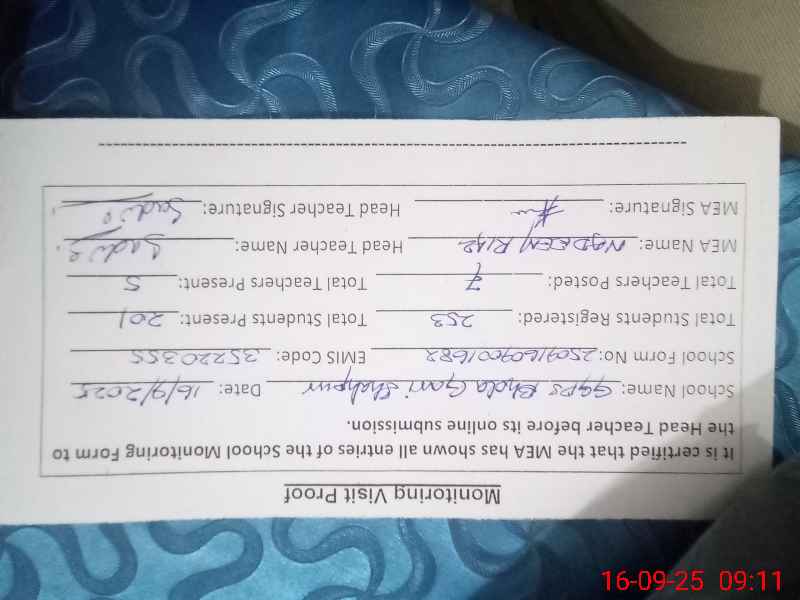 Monitoring Visit Proof
It is certified that the MEA has shown all entries of the School Monitoring Form to
the Head Teacher before its online submission.
School Name: GGPS Bhola Gari Shahpur Date: 16/9/2025
School Form No: 250916090001682 EMIS Code: 35220355
Total Students Registered: 253 Total Students Present: 201
Total Teachers Posted: 7 Total Teachers Present: 5
MEA Name: NADEEM RIAZ Head Teacher Name:
MEA Signature: Head Teacher Signature:
16-09-25 09:11